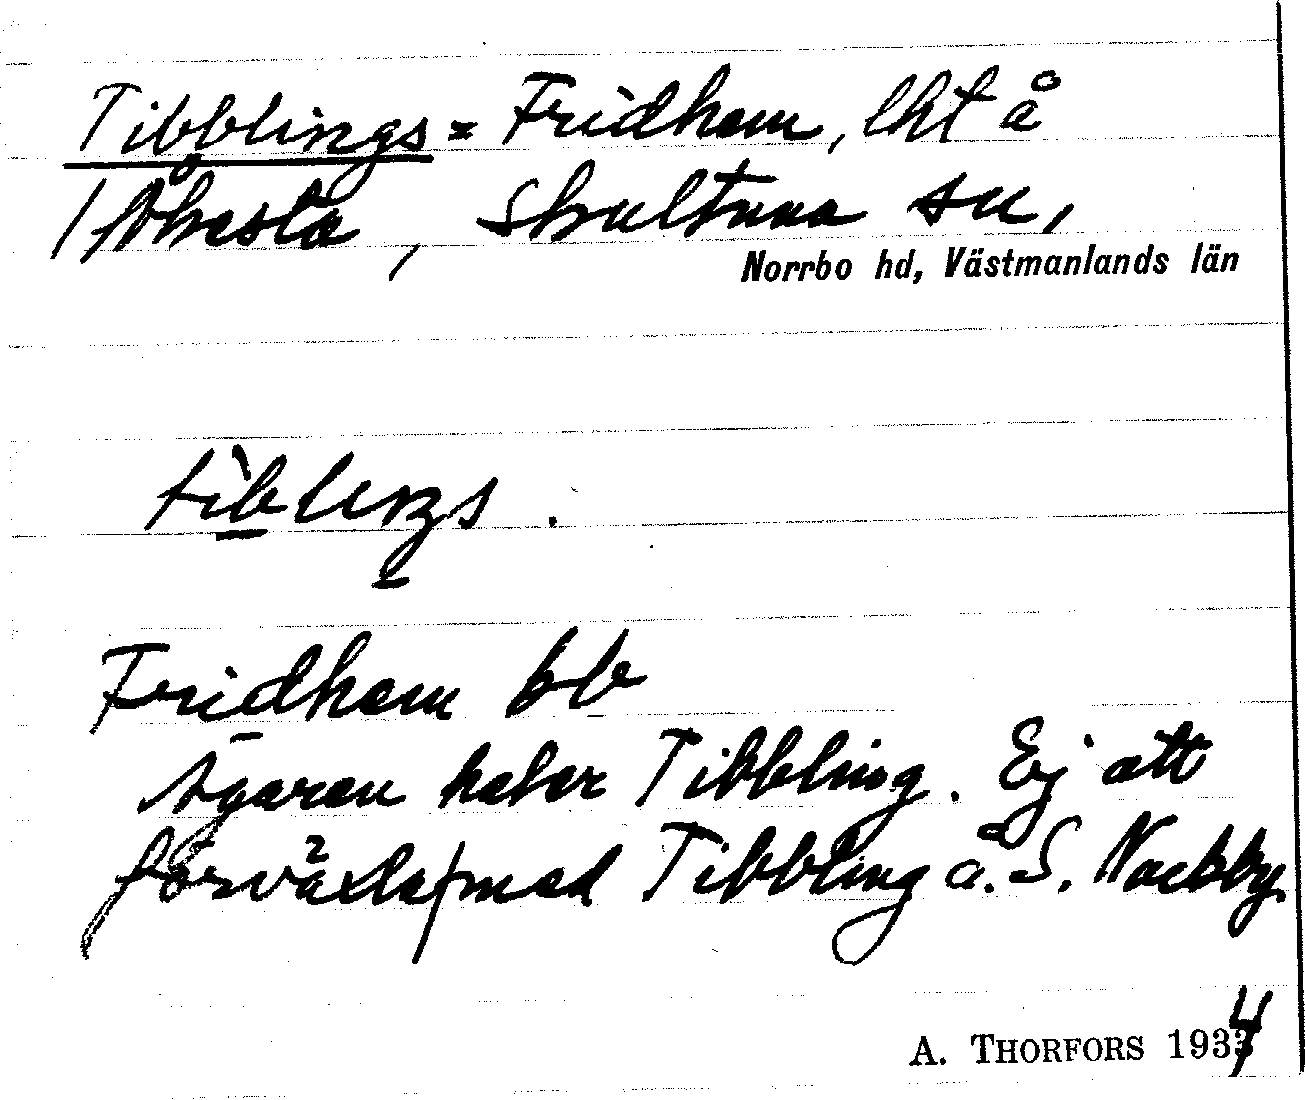 Tibblings = Fridhem, lht å
/ Åkesta, Skultuna sn,
Norrbo hd, Västmanlands län
tìblings.
Fridhem bb
Ägaren heter Tibbling. Ej att
förväxla med Tibbling å S. Nackby
A. THORFORS 1934